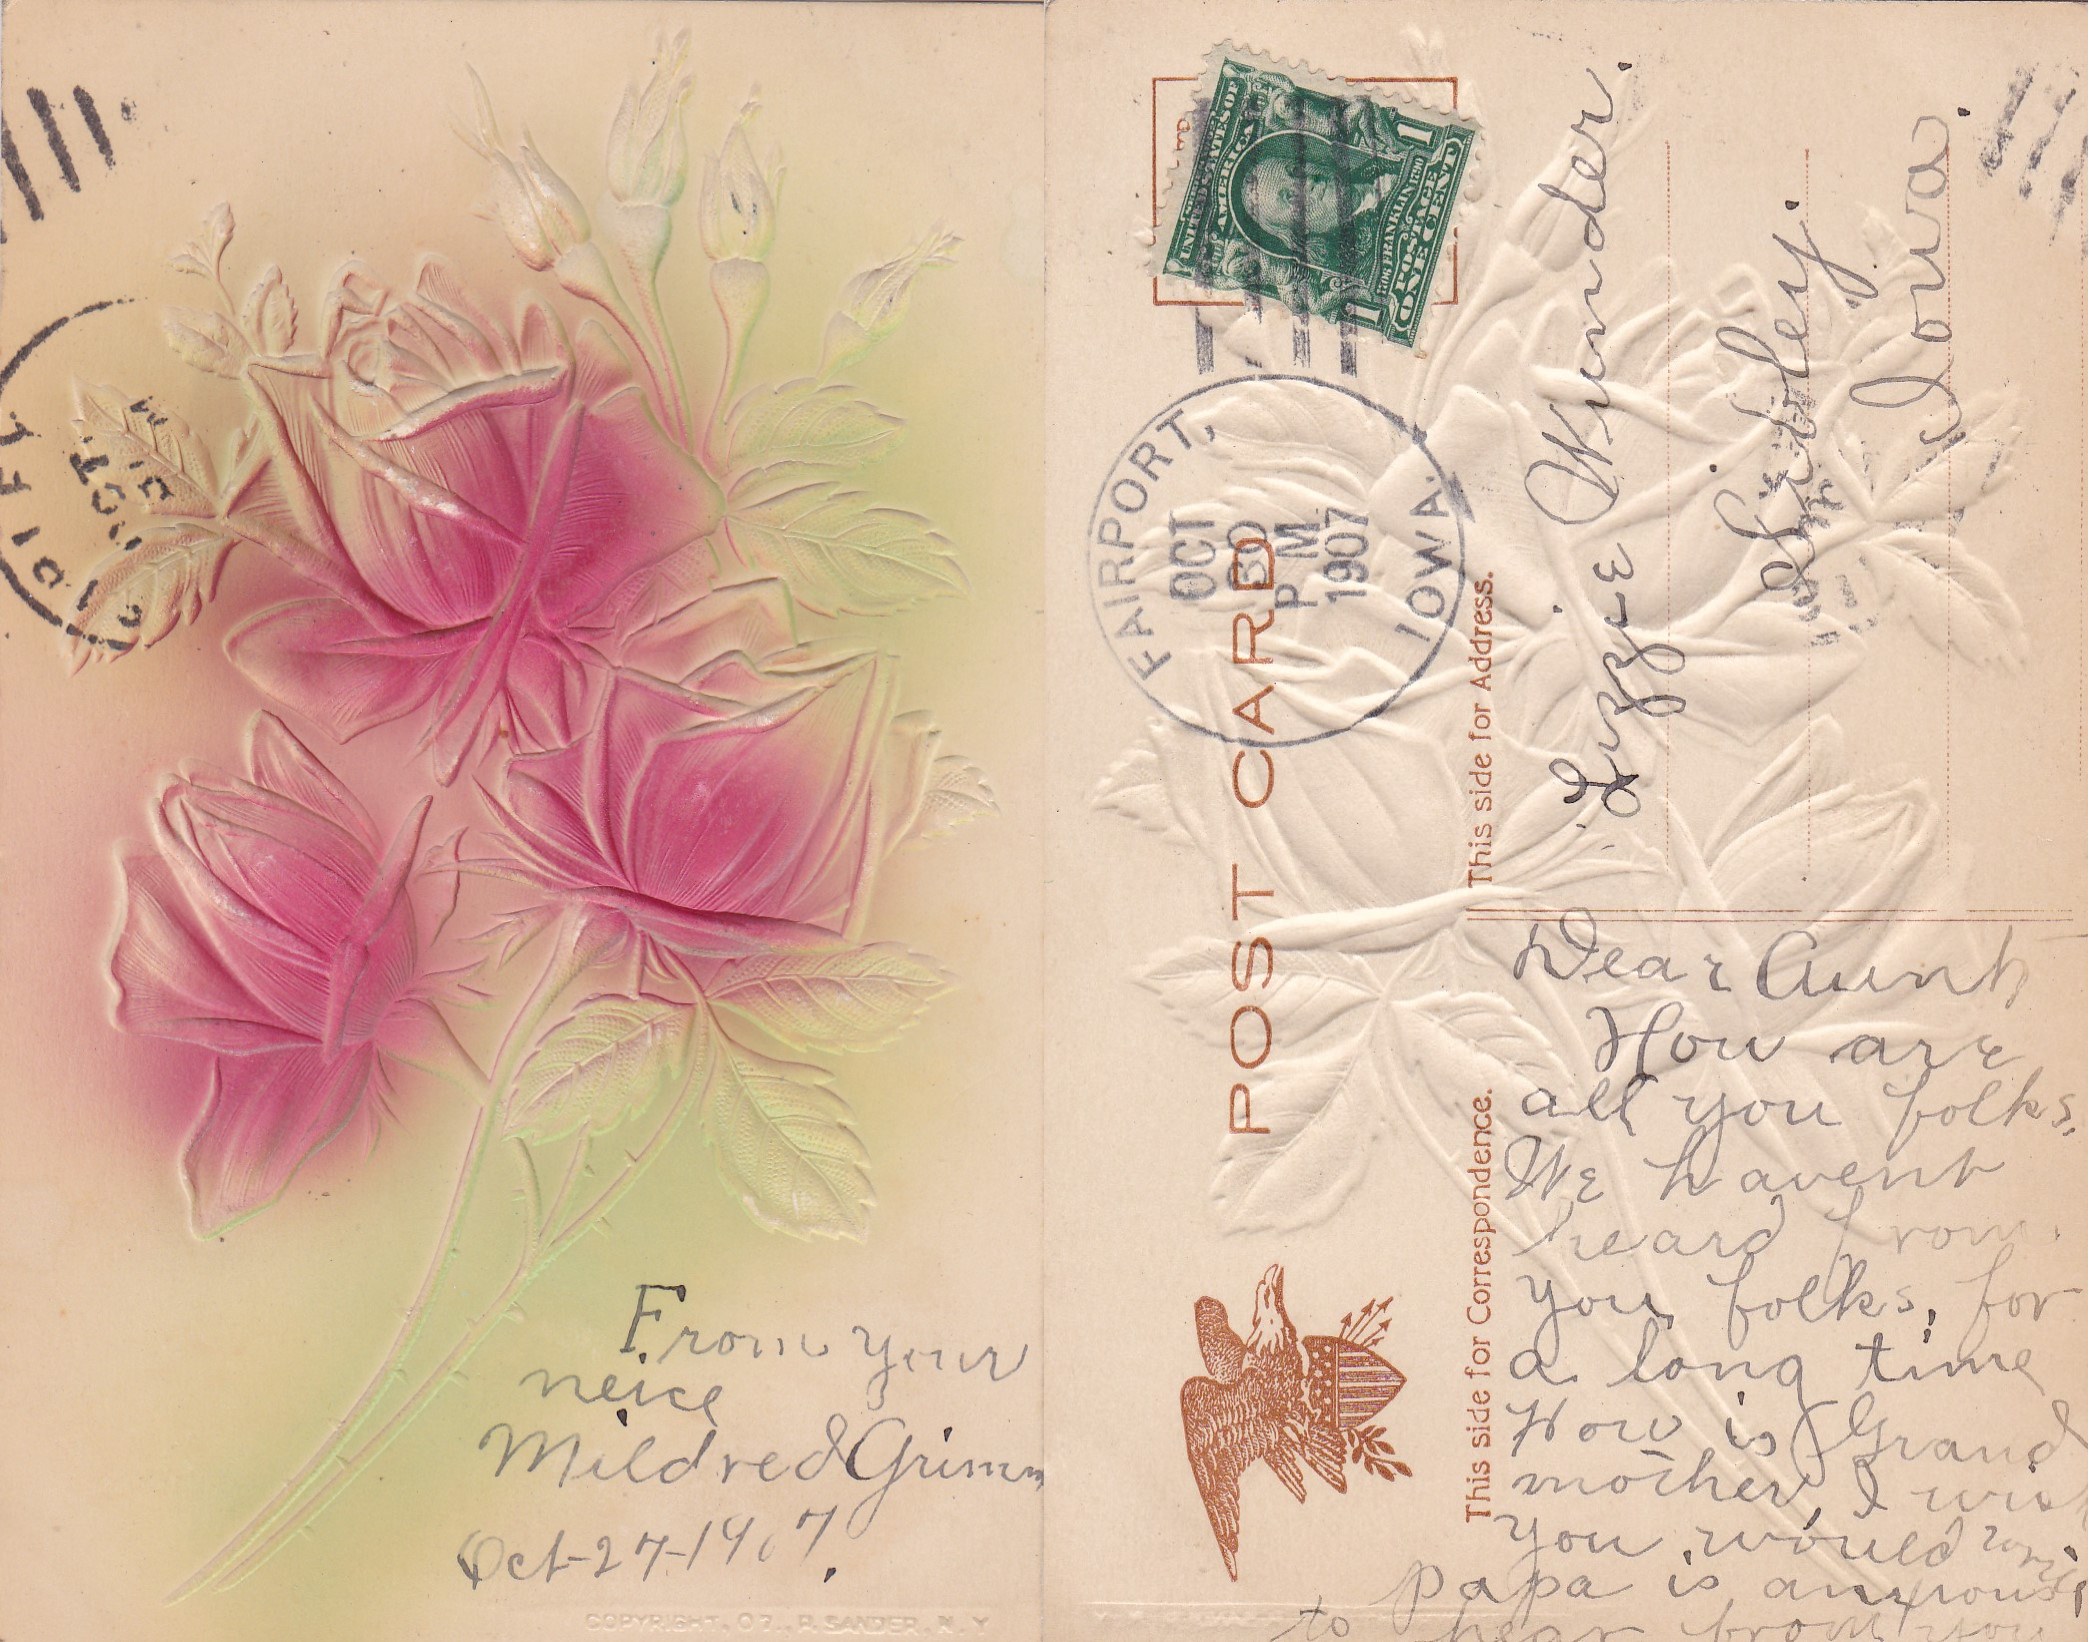 OCT
From your
neice
Mildred Grimm
Oct-27-1907.
COPYRIGHT, 07., R. SANDER, N.Y
UNITED STATES OF
AMERICA
1706 FRANKLIN 1790
POSTAGE
ONE CENT
1
1
FAIRPORT,
IOWA
OCT
30
PM
1907
POST CARD
This side for Address.
Lizzie Wunder.
Sibley.
Iowa.
This side for Correspondence.
Dear Aunt
How are
all you folks,
We havent
heard from
you folks, for
a long time
How is Grand
mother, I wish
you would
papa is anxious
to hear from you